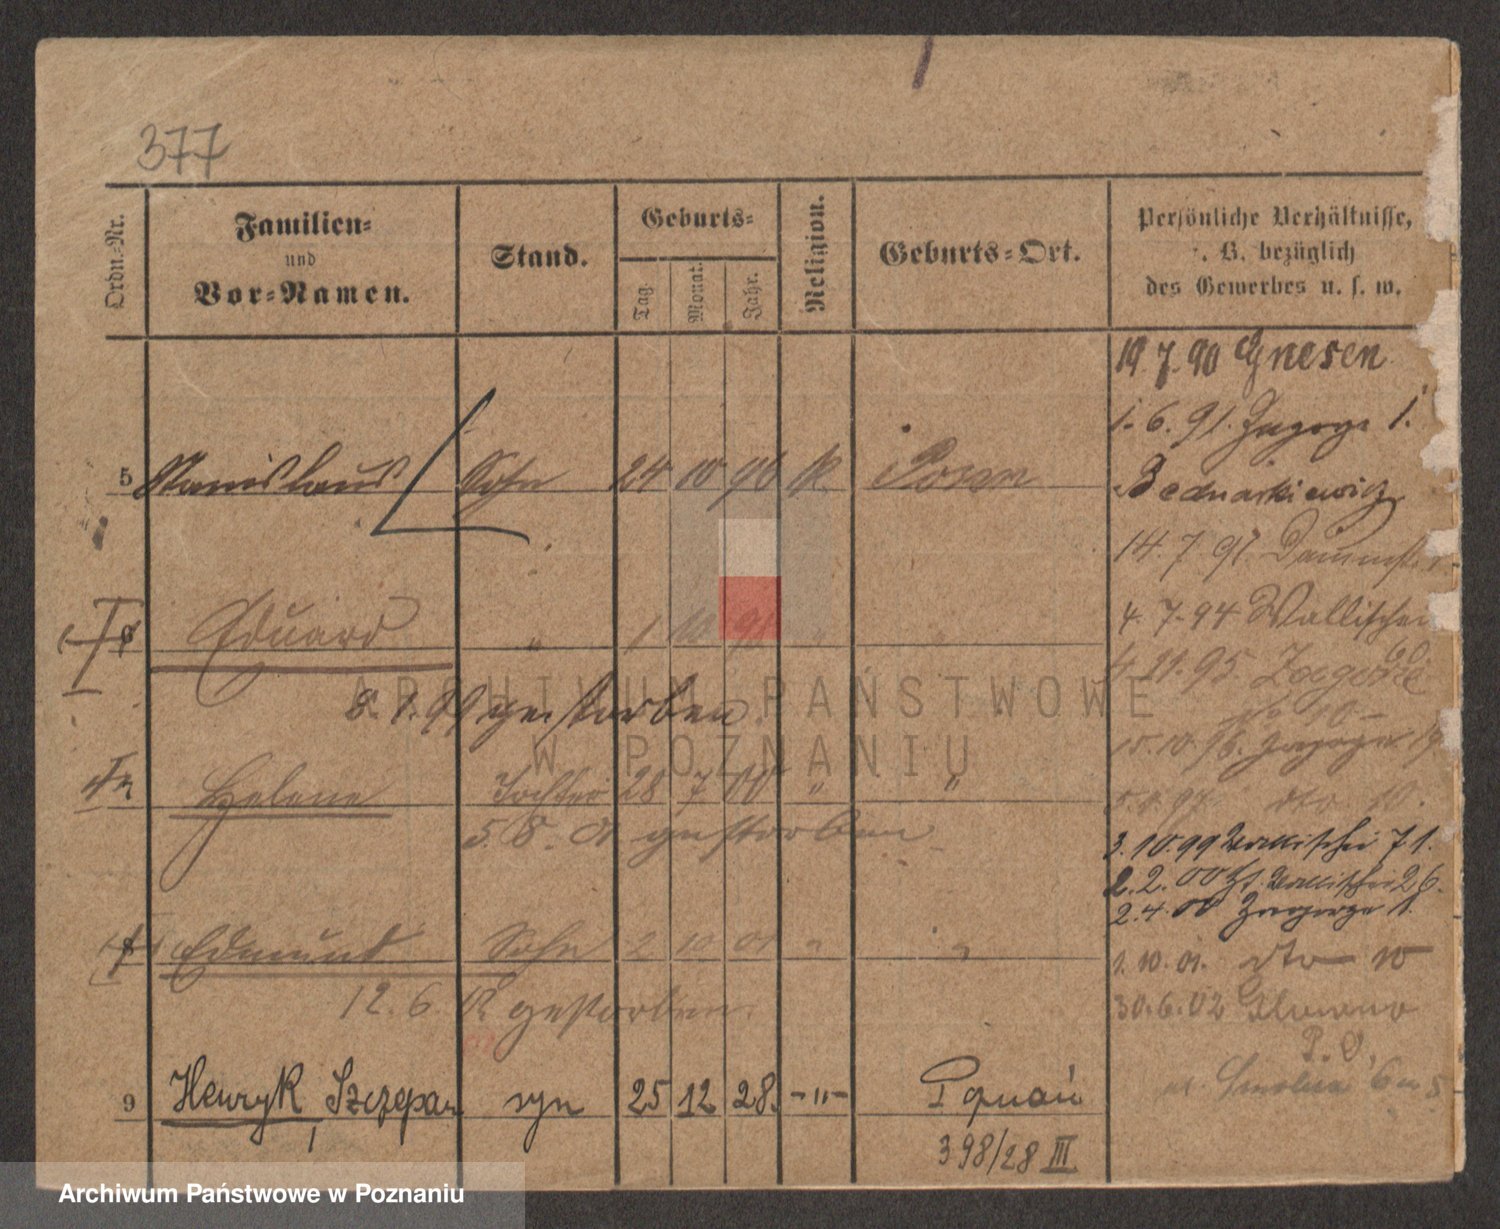 377
Ordn.-Nr.
Familien-
und
Vor-Namen.
Stand.
Geburts-
Tag.
Monat.
Jahr.
Religion.
Geburts-Ort.
Persönliche Verhältnisse,
z. B. bezüglich
des Gewerbes u. s. w.
19.7.90 Gnesen
1.6.91. Zagorze 1.
Bednarkiewicz
5 Stanislaus Sohn 24 10 96 k Posen
14.7.91
4.7.94 Wallischei
60
6 Eduard " 1 10 "
4.11.95. Zagorze
No 10
8.1.99 gestorben.
15.10.96. Zagorze 19
7 Helene Tochter 28 7 00 " "
dto 10.
5.8.01 gestorben.
3.10.99 Wallischei 71.
2.2.00 Wallischei 26.
2.4.00 Zagorze 1.
8 Edmund Sohn 2 10 01 " "
1.10.01. dto 10
12.6.02 gestorben.
30.6.02
P. O.
9 Henryk Szczepan syn 25 12 28. -"- Poznań
398/28 III
ARCHIWUM PAŃSTWOWE
W POZNANIU
Archiwum Państwowe w Poznaniu